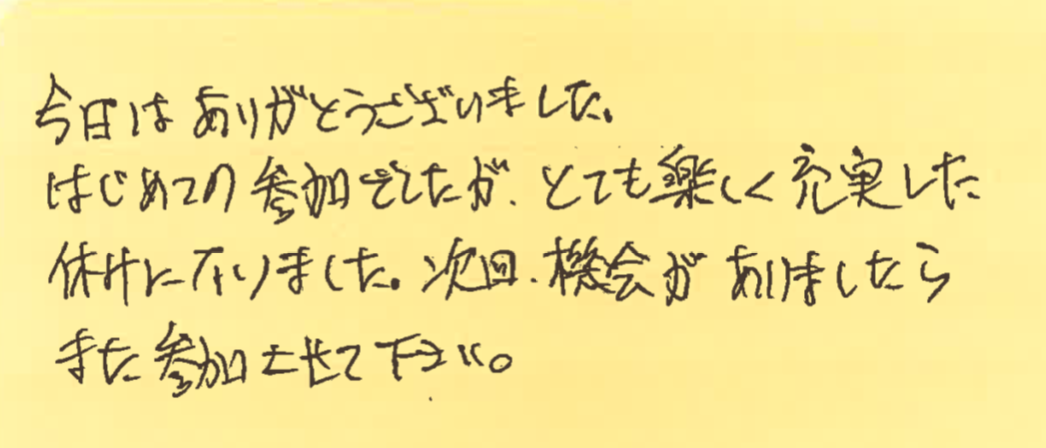 今日はありがとうございました。
はじめての参加でしたが、とても楽しく充実した
休日になりました。次回、機会がありましたら
また参加させて下さい。